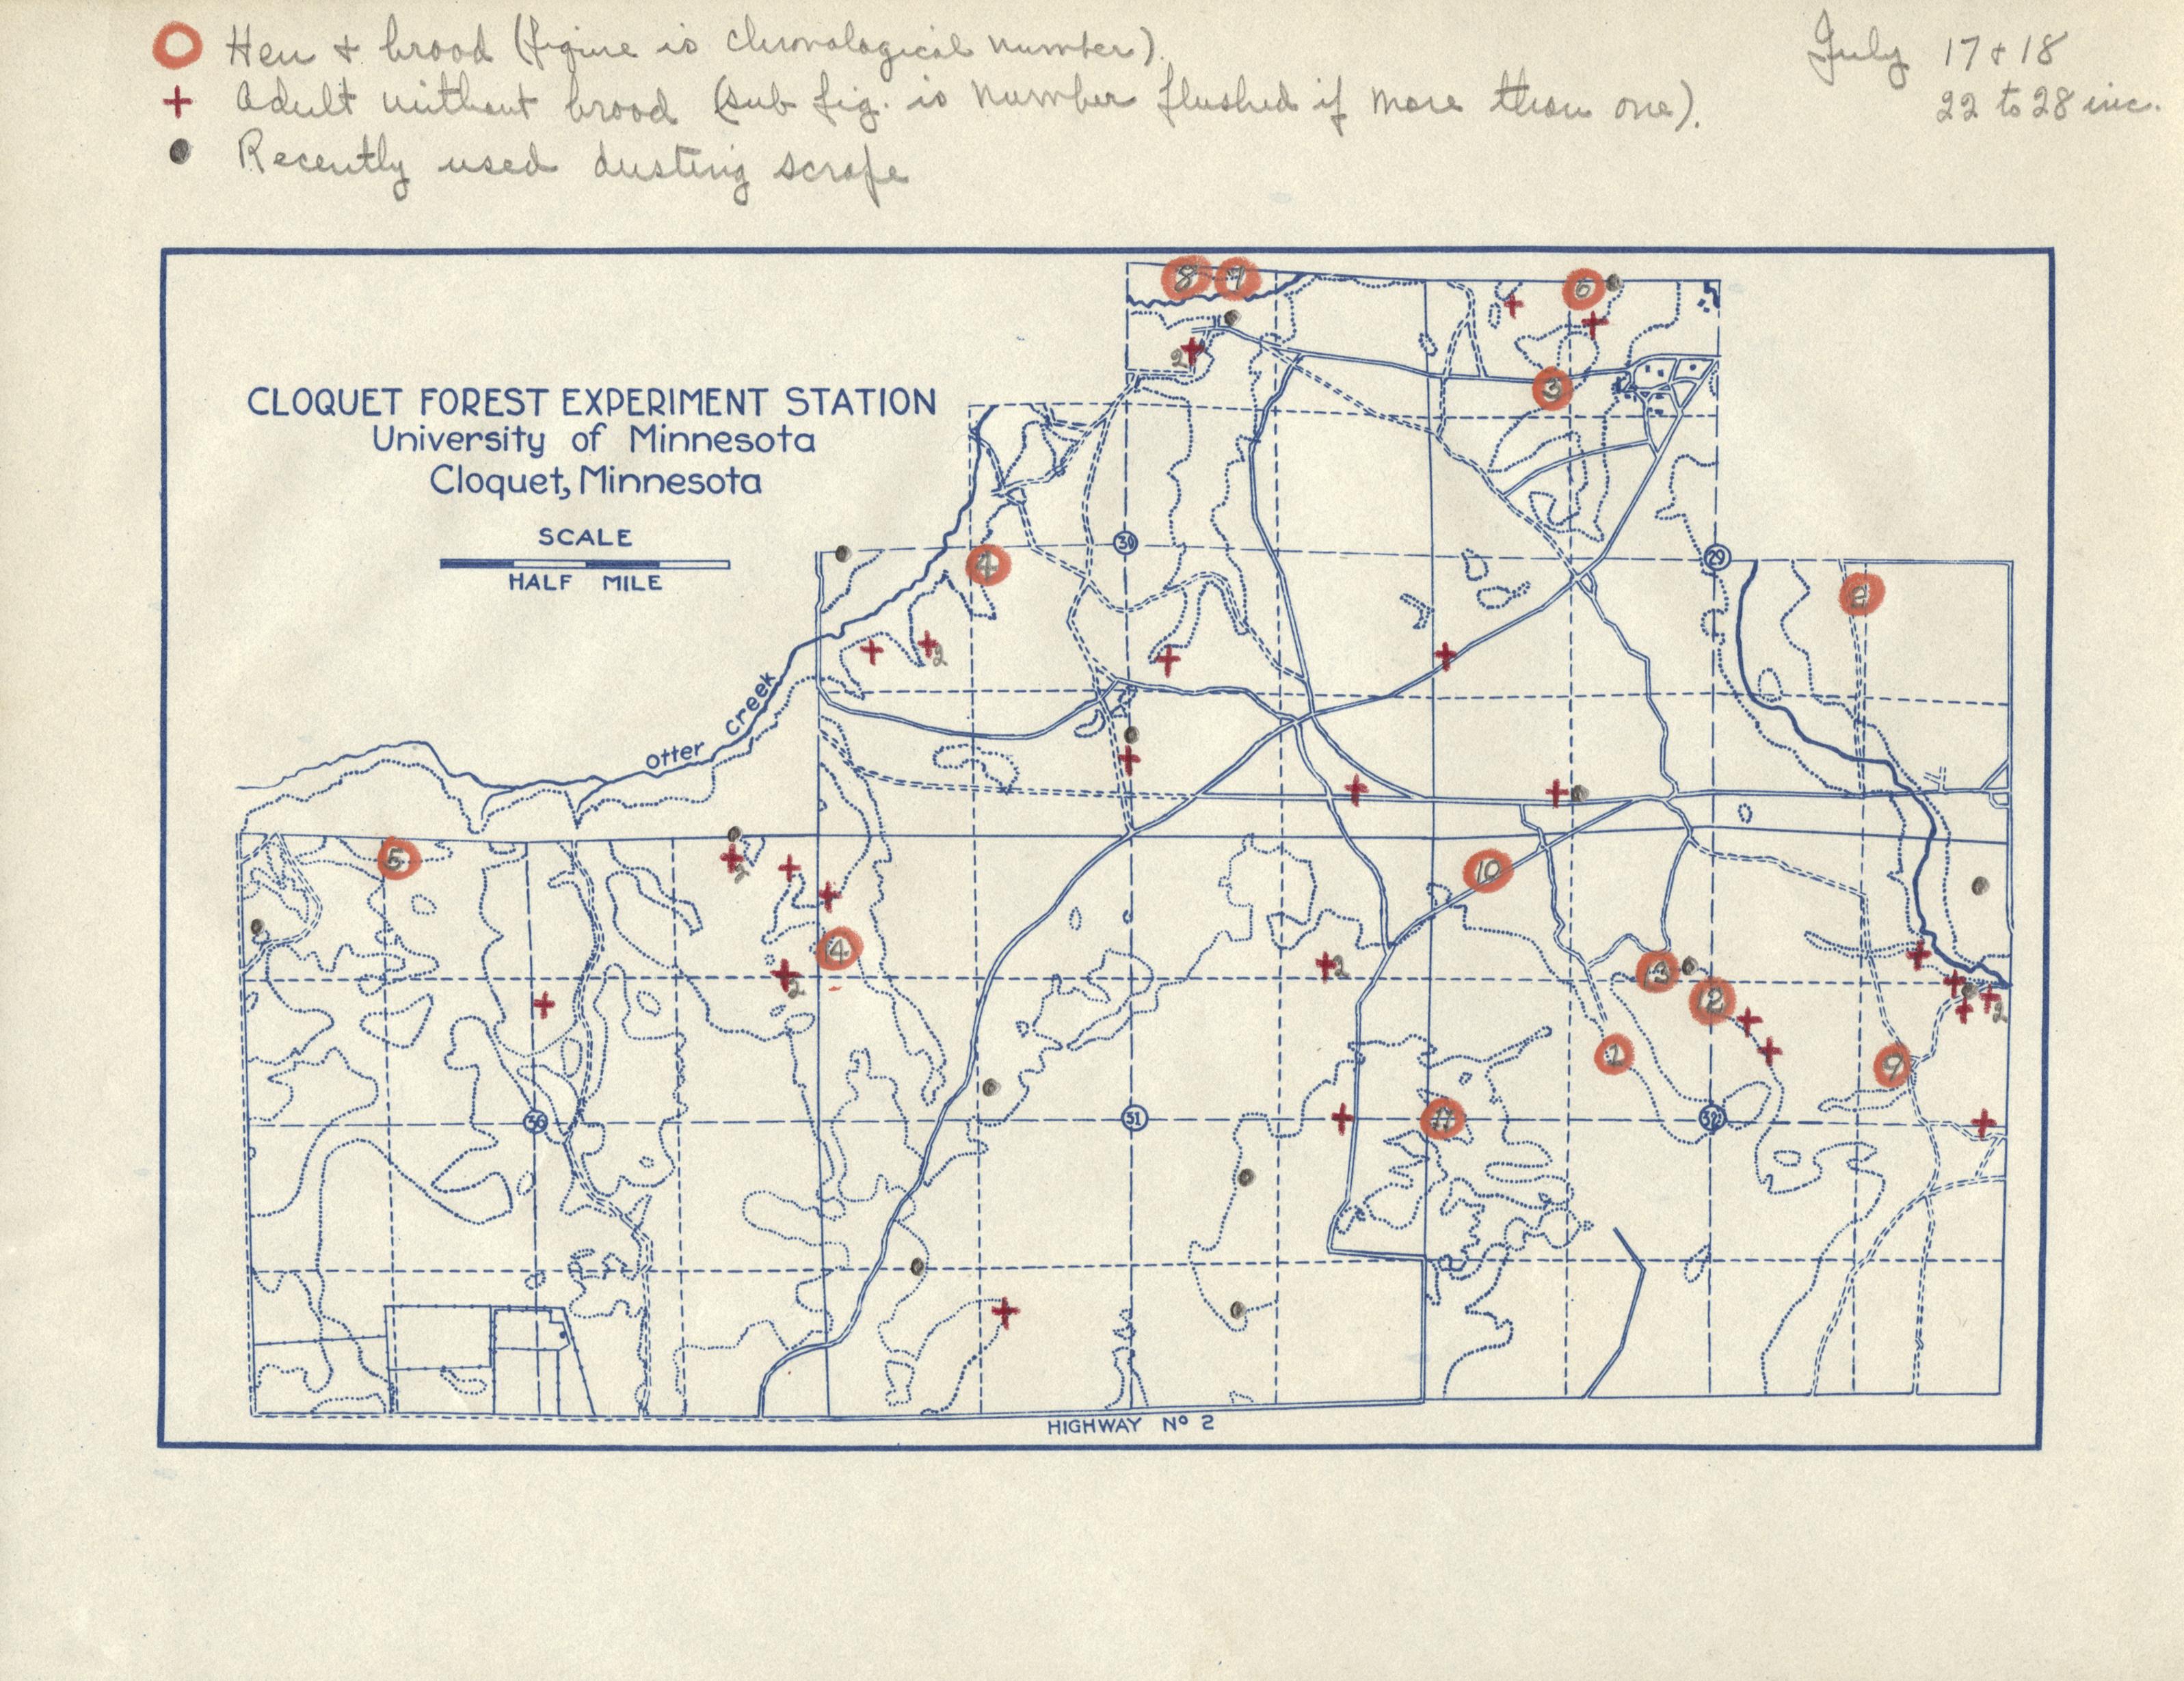 Hen & brood (figure is chronological number).
July 17 & 18
+ Adult without brood (sub fig. is number flushed if more than one).
22 to 28 inc.
Recently used dusting scrape
8
7
6
2
3
CLOQUET FOREST EXPERIMENT STATION
University of Minnesota
Cloquet, Minnesota
SCALE
HALF MILE
30
29
4
2
2
Otter Creek
5
2
10
4
2
2
13
12
2
1
9
36
31
11
32
HIGHWAY Nº 2